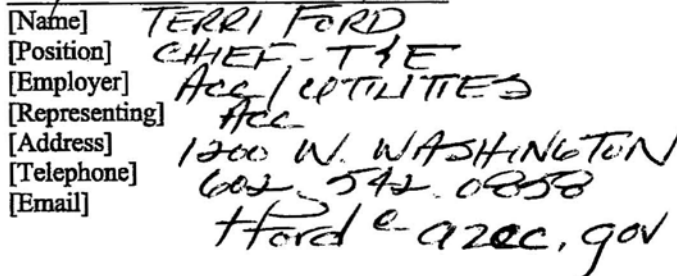 [Name] TERRI FORD
[Position] CHIEF - T & E
[Employer] ACC / UTILITIES
[Representing] ACC
[Address] 1200 W. WASHINGTON
[Telephone] 602.542.0858
[Email] tford@azcc.gov